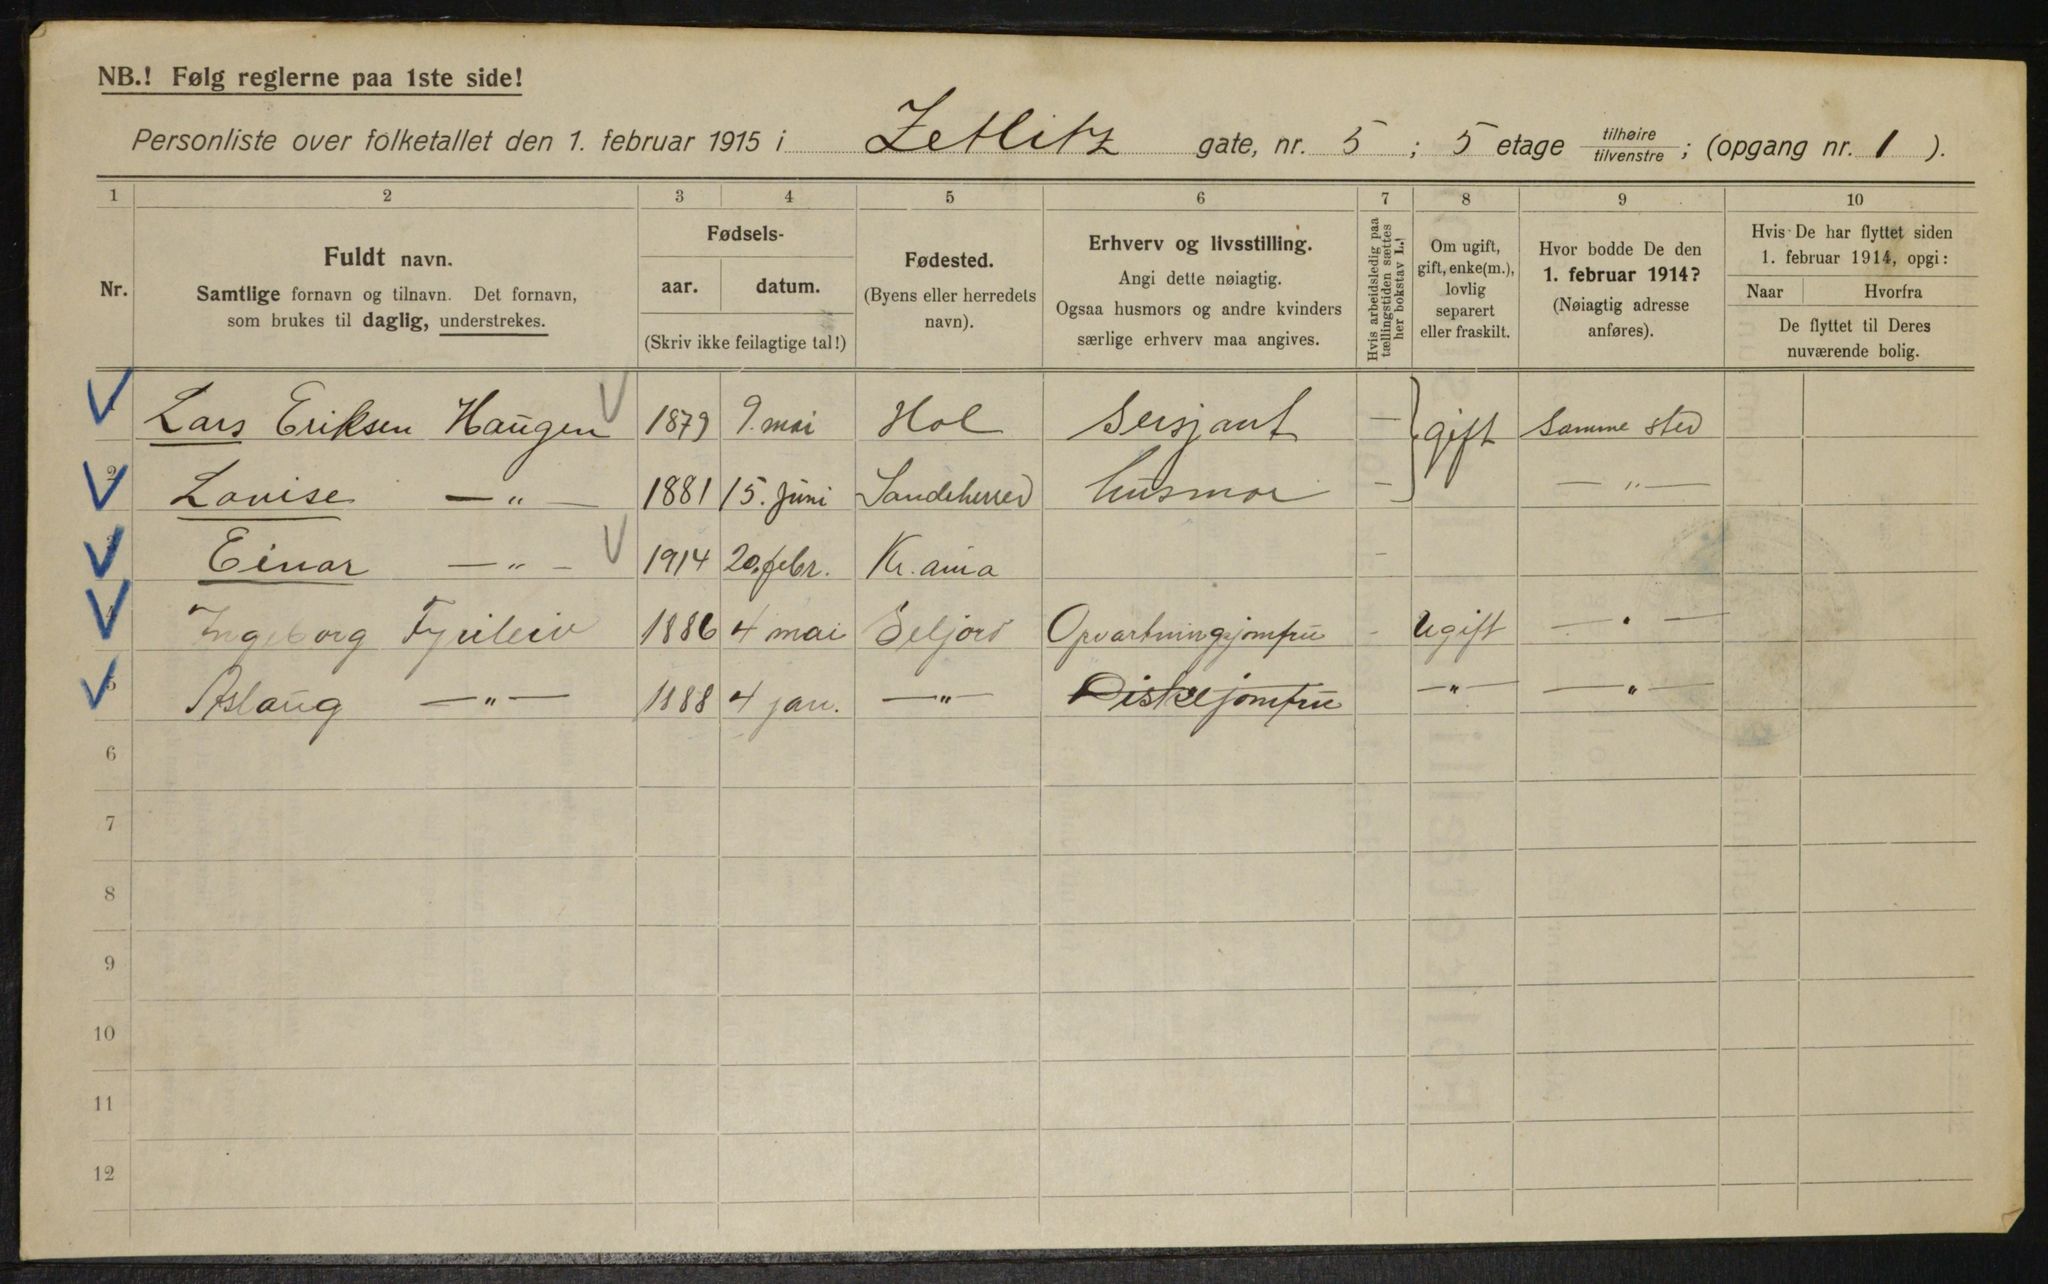 NB.! Følg reglerne paa 1ste side!
Personliste over folketallet den 1. februar 1915 i Zetlitz gate, nr. 5 ; 5 etage tilhøire/tilvenstre ; (opgang nr. 1 ).
1 2 3 4 5 6 7 8 9 10
Nr.
Fuldt navn.
Samtlige fornavn og tilnavn. Det fornavn,
som brukes til daglig, understrekes.
Fødsels-
aar. datum.
(Skriv ikke feilagtige tal!)
Fødested.
(Byens eller herredets
navn).
Erhverv og livsstilling.
Angi dette nøiagtig.
Ogsaa husmors og andre kvinders
særlige erhverv maa angives.
Hvis arbeidsledig paa
tællingstiden sættes
her bokstav L.!
Om ugift,
gift, enke(m.),
lovlig
separert
eller fraskilt.
Hvor bodde De den
1. februar 1914?
(Nøiagtig adresse
anføres).
Hvis De har flyttet siden
1. februar 1914, opgi:
Naar Hvorfra
De flyttet til Deres
nuværende bolig.
Lars Eriksen Haugen 1879 9. mai Hol Sersjant — gift Samme sted
2 Lovise — " — 1881 15. juni Sandeherred husmor — — " —
3 Einar — " — 1914 20. febr. Kr.ania —
4 Ingeborg 1886 4 mai Seljord Opvartningsjomfru - Ugift — " —
5 Aslaug — " — 1888 4 jan. — " — Diskejomfru — " — — " —
6
7
8
9
10
11
12